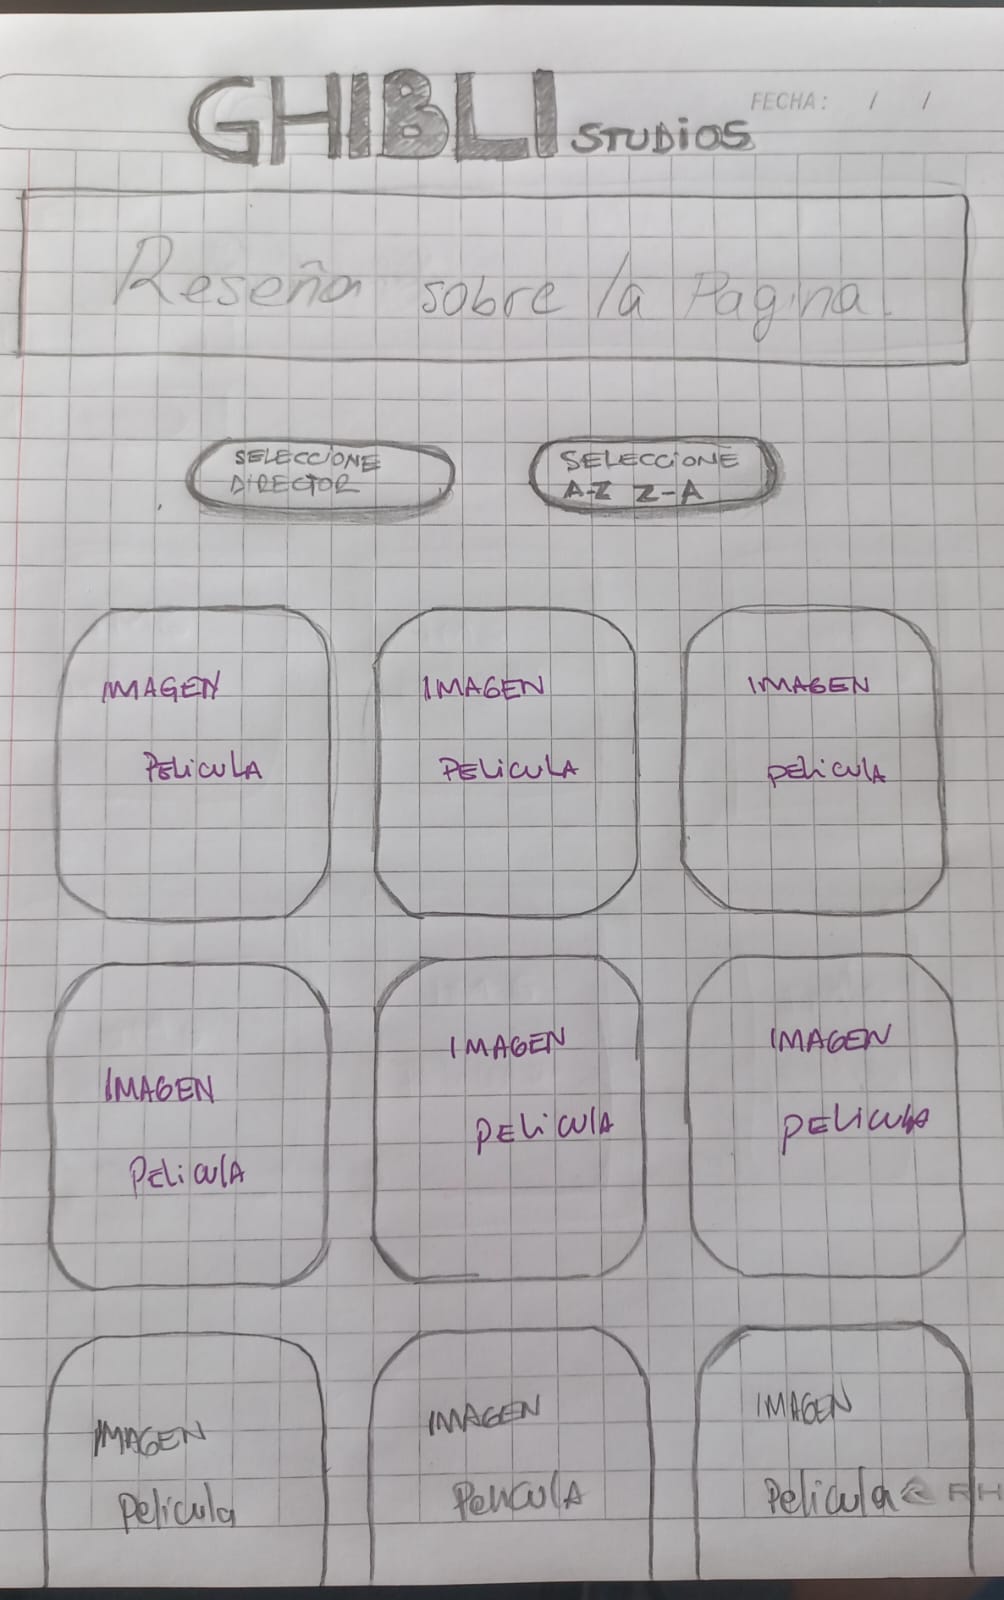 GHIBLI STUDIOS
FECHA: / /
Reseña sobre la Pagina.
SELECCIONE
DIRECTOR
SELECCIONE
A-Z Z-A
IMAGEN
PELICULA
IMAGEN
PELICULA
IMAGEN
PELICULA
IMAGEN
PELICULA
IMAGEN
PELICULA
IMAGEN
PELICULA
IMAGEN
Pelicula
IMAGEN
PELICULA
IMAGEN
Pelicula